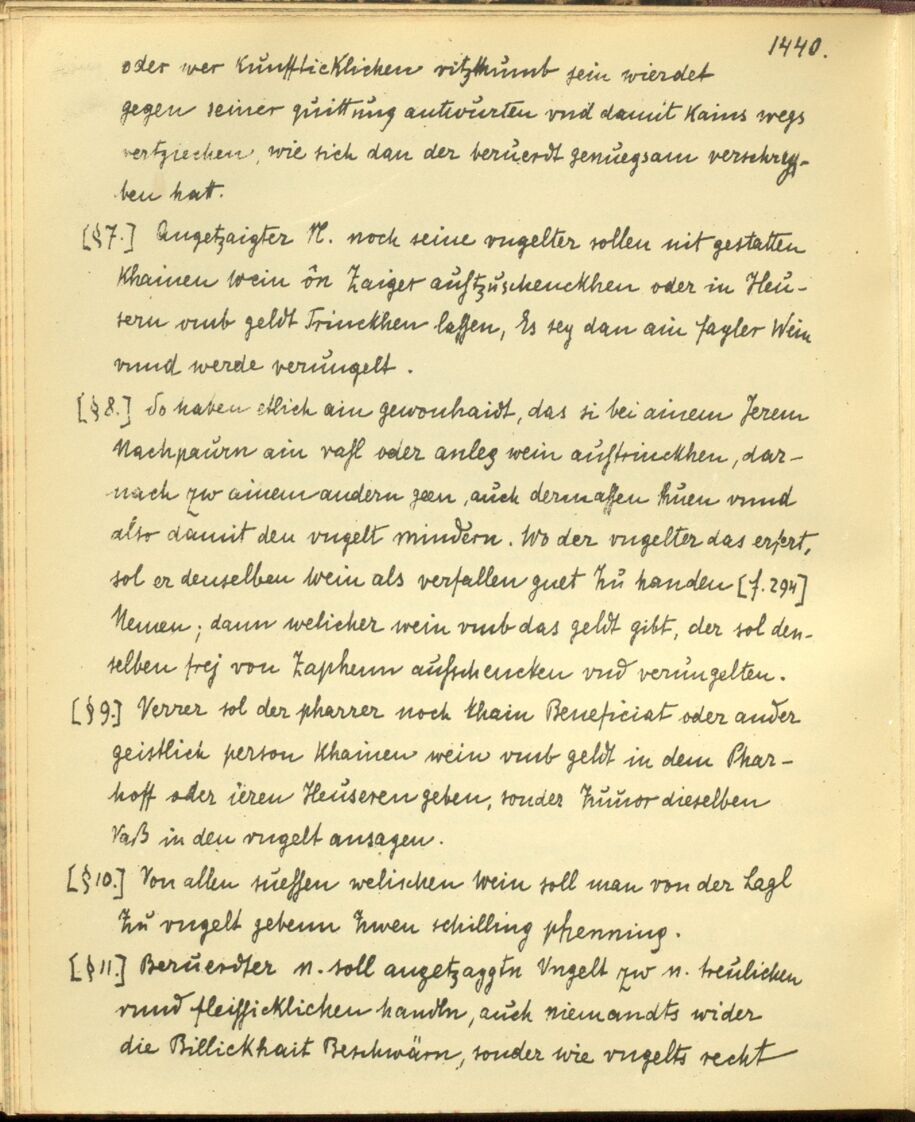 1440.
oder wer kunffticklichen vitzthumb sein wierdet
gegen seiner quittung antwurten vnd damit kains wegs
vertziechen, wie sich dan der beruerdt genuegsam verschry-
ben hatt.
[§7.] Angetzaigter N. noch seine vngelter sollen nit gestatten
khainen wein ôn Zaiger auftzuschenckhen oder in Heu-
sern vmb geldt Trinckhen lassen, Es sey dan ain fayler Wein
vnnd werde verungelt.
[§8.] So haben etlich ain gewonhaidt, das si bei ainem Jerem
Nachpaurn ain vasl oder anleg wein austrinckhen, dar-
nach zw ainem andern geen, auch dermassen thuen vnnd
also damit den vngelt mindern. Wo der vngelter das erfert,
sol er denselben wein als verfallen guet Zu handen [f. 294]
Nemen; dann welicher wein vmb das geldt gibt, der sol den-
selben frej von Zaphenn aufschencken vnd verungelten.
[§9.] Verrer sol der pharrer noch khain Beneficiat oder ander
geistlich person khainen wein vmb geldt in dem Phar-
hoff oder iëren Heuseren geben, sonder Zuuor dieselben
Vaß in den vngelt ansagen.
[§10.] Von allen suessen welischen wein soll man von der Lagl
Zu vngelt gebenn Zwen schilling phenning.
[§11.] Beruerdter N. soll angetzaygtn Vngelt zw N. treulichen
vnnd fleissicklichen handln, auch niemandts wider
die Billickhait Beschwärn, sonder wie vngelts recht